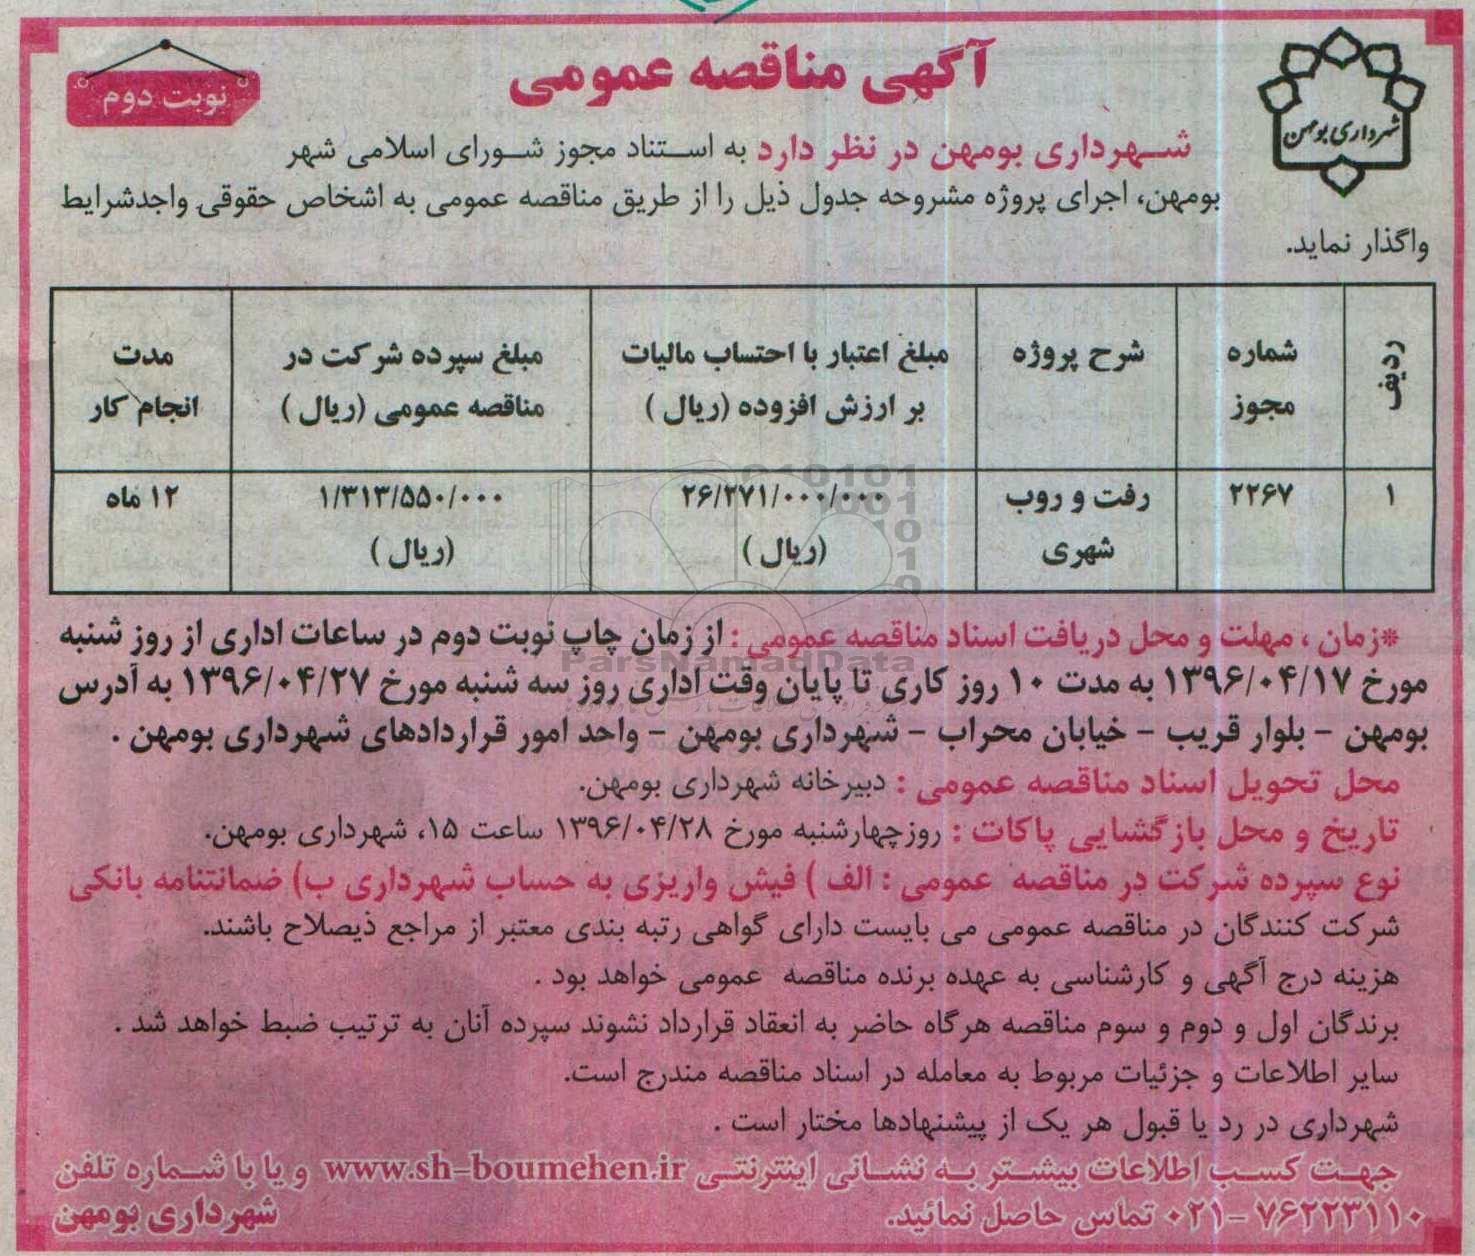 آگهی مناقصه عمومی
نوبت دوم
شهرداری بومهن
شهرداری بومهن در نظر دارد به استناد مجوز شورای اسلامی شهر
بومهن، اجرای پروژه مشروحه جدول ذیل را از طریق مناقصه عمومی به اشخاص حقوقی واجدشرایط
واگذار نماید.
ردیف | شماره مجوز | شرح پروژه | مبلغ اعتبار با احتساب مالیات بر ارزش افزوده (ریال) | مبلغ سپرده شرکت در مناقصه عمومی (ریال) | مدت انجام کار
۱ | ۲۲۶۷ | رفت و روب شهری | ۲۶/۲۷۱/۰۰۰/۰۰۰ (ریال) | ۱/۳۱۳/۵۵۰/۰۰۰ (ریال) | ۱۲ ماه
010101
1001
10
1
0
ParsNamadData
*زمان ، مهلت و محل دریافت اسناد مناقصه عمومی : از زمان چاپ نوبت دوم در ساعات اداری از روز شنبه
مورخ ۱۳۹۶/۰۴/۱۷ به مدت ۱۰ روز کاری تا پایان وقت اداری روز سه شنبه مورخ ۱۳۹۶/۰۴/۲۷ به آدرس
بومهن - بلوار قریب - خیابان محراب - شهرداری بومهن - واحد امور قراردادهای شهرداری بومهن .
محل تحویل اسناد مناقصه عمومی : دبیرخانه شهرداری بومهن.
تاریخ و محل بازگشایی پاکات : روزچهارشنبه مورخ ۱۳۹۶/۰۴/۲۸ ساعت ۱۵، شهرداری بومهن.
نوع سپرده شرکت در مناقصه عمومی : الف ) فیش واریزی به حساب شهرداری ب) ضمانتنامه بانکی
شرکت کنندگان در مناقصه عمومی می بایست دارای گواهی رتبه بندی معتبر از مراجع ذیصلاح باشند.
هزینه درج آگهی و کارشناسی به عهده برنده مناقصه عمومی خواهد بود .
برندگان اول و دوم و سوم مناقصه هرگاه حاضر به انعقاد قرارداد نشوند سپرده آنان به ترتیب ضبط خواهد شد .
سایر اطلاعات و جزئیات مربوط به معامله در اسناد مناقصه مندرج است.
شهرداری در رد یا قبول هر یک از پیشنهادها مختار است .
جهت کسب اطلاعات بیشتر به نشانی اینترنتی www.sh-boumehen.ir و یا با شماره تلفن
۷۶۲۲۳۱۱۰ -۰۲۱ تماس حاصل نمائید.
شهرداری بومهن